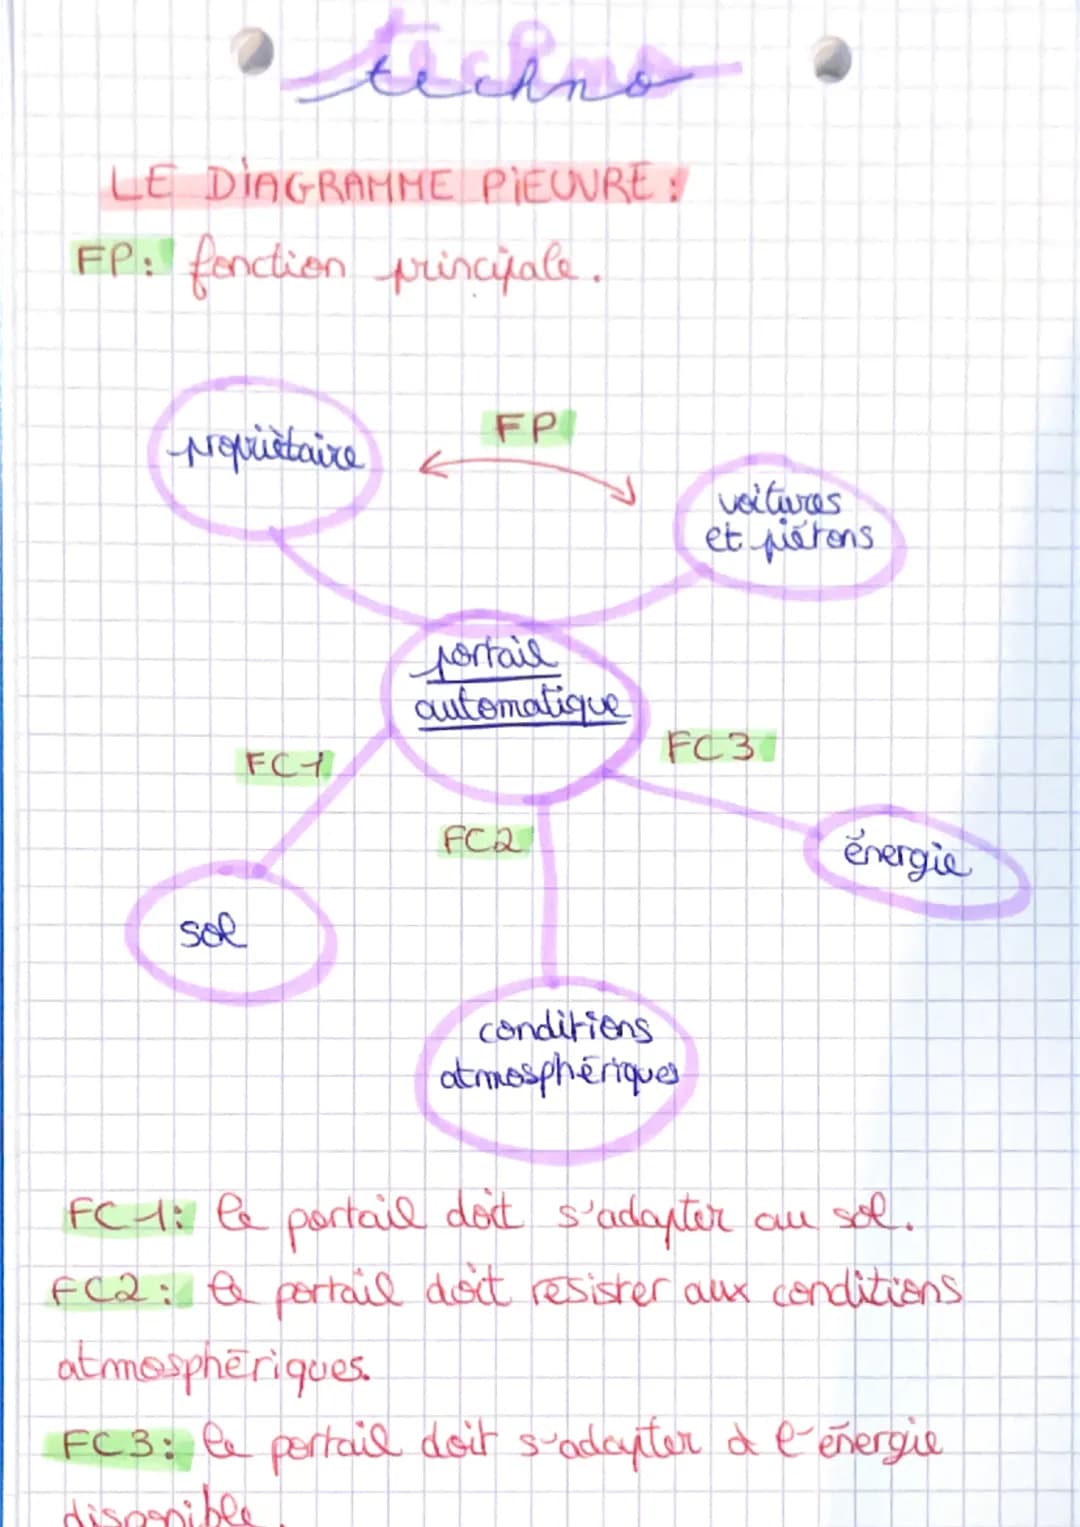 techno
LE DIAGRAMME PIEUVRE :
FP: fonction principale.
propriètaire
FP
voitures
et piétons
portail
automatique
FC1
FC3
FC2
énergie
sol
conditions
atmosphériques
FC1: le portail doit s'adapter au sol.
FC2: le portail doit resister aux conditions
atmosphériques.
FC3: le portail doit s'adapter à l'énergie
disponible.